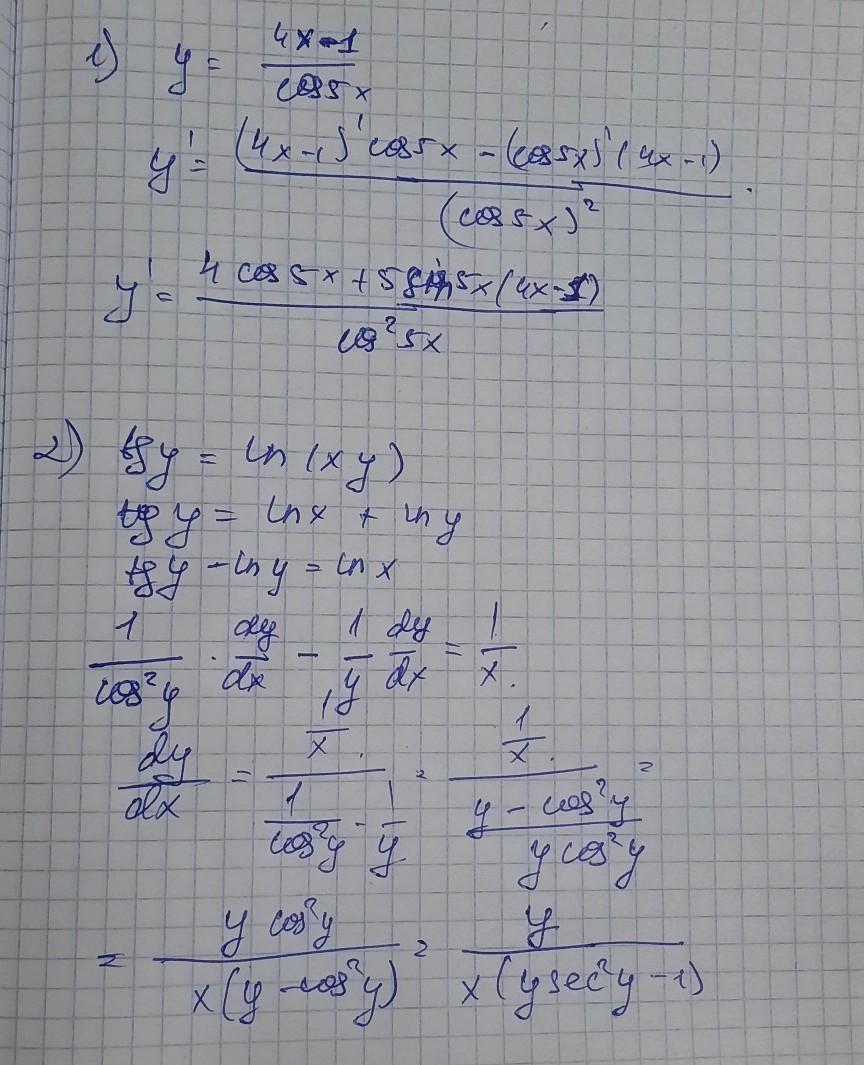 1) y = (4x-1)/(cos5x)
y' = ((4x-1)' cos5x - (cos5x)' (4x-1))/((cos5x)²).
y' = (4 cos5x + 5 sin5x (4x-1))/(cos²5x)
2) tgy = ln(xy)
tgy = lnx + lny
tgy - lny = lnx
1/(cos²y) · dy/dx - 1/y dy/dx = 1/x.
dy/dx = (1/x.)/(1/(cos²y) - 1/y) = (1/x.)/((y - cos²y)/(y cos²y)) =
= (y cos²y)/(x(y - cos²y)) = y/(x(y sec²y - 1))